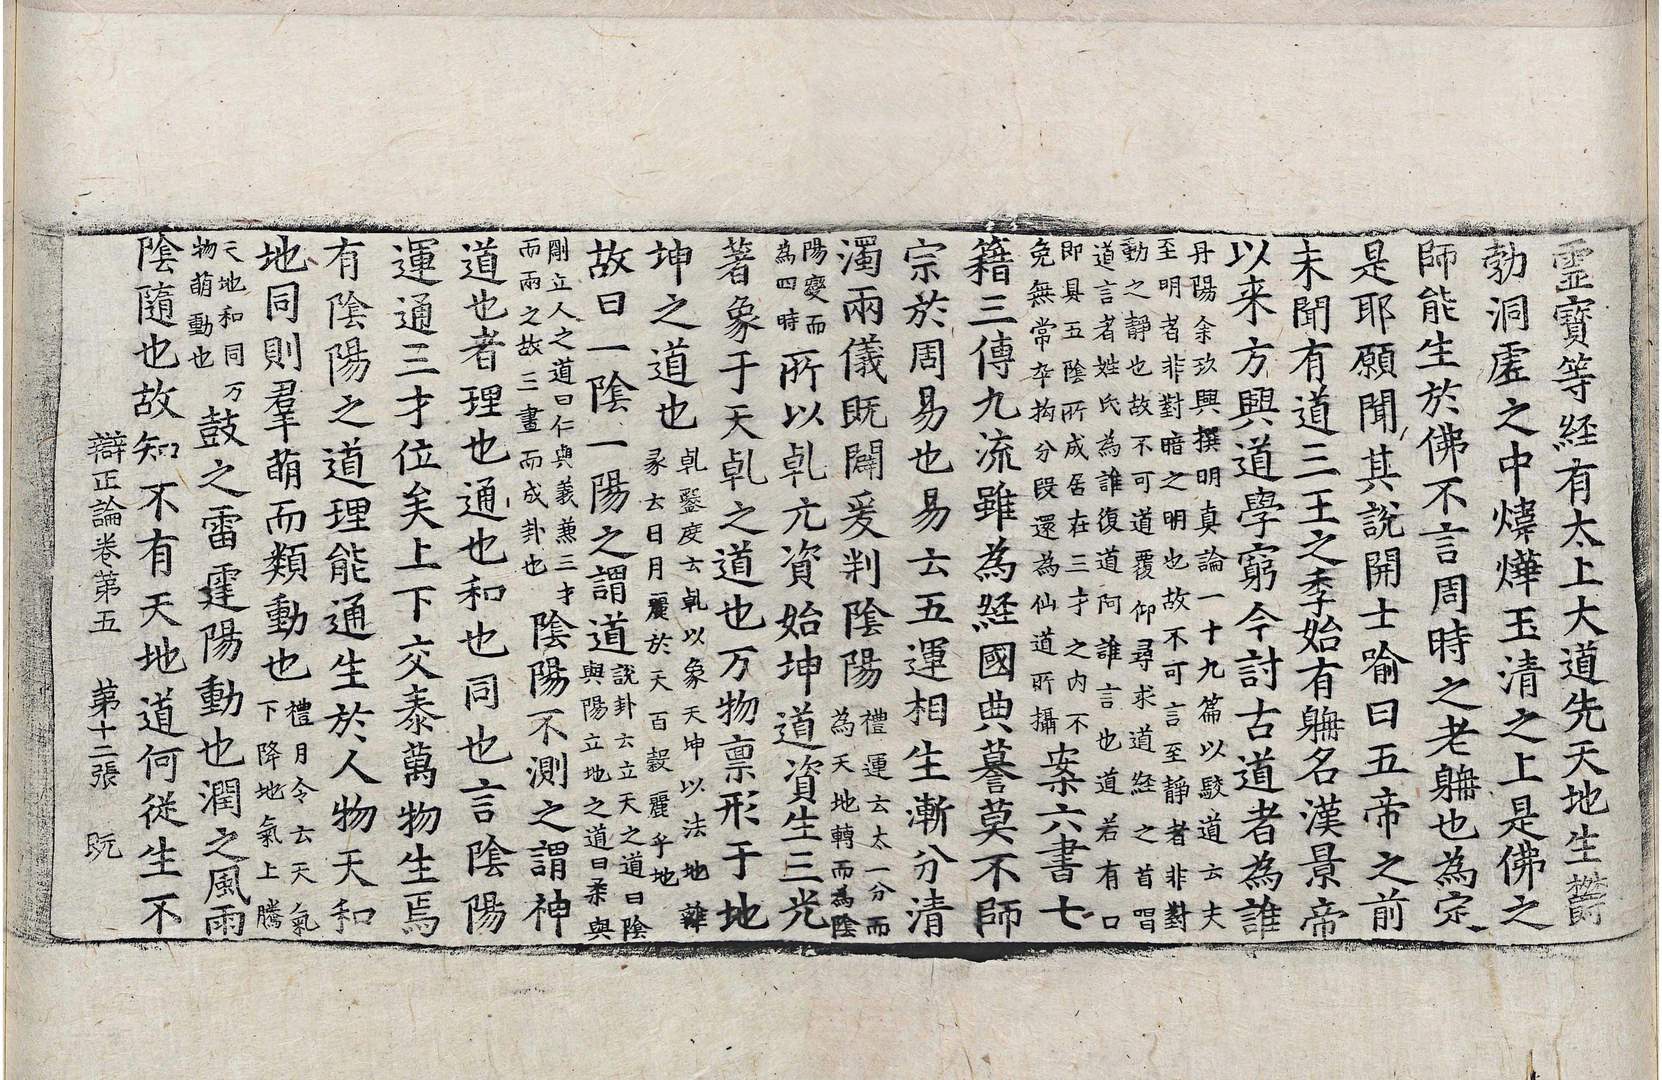 靈寳等経有太上大道先天地生欝
勃洞虗之中煒燁玉清之上是佛之
師能生於佛不言周時之老聃也為定
是耶願聞其說開士喻曰五帝之前
未聞有道三王之季始有聃名漢景帝
以来方興道學窮今討古道者為誰
丹陽余玖興撰明真論一十九篇以駁道云夫
至明者非對暗之明也故不可言至靜者非對
動之靜也故不可道覆仰尋求道経之首唱
道言者姓氏為誰復道阿誰言也道若有口
即具五陰所成居在三才之内不
免無常卒拘分段還為仙道所攝
案六書七
籍三傳九流雖為経國典謩莫不師
宗於周易也易云五運相生漸分清
濁兩儀既闢爰判陰陽
禮運云太一分而
為天地轉而為陰
陽變而
為四時
所以乹元資始坤道資生三光
著象于天乹之道也万物禀形于地
坤之道也
乹鑿度云乹以象天坤以法地離
彖云日月麗於天百穀麗乎地
故曰一陰一陽之謂道
說卦云立天之道曰陰
與陽立地之道曰柔與
剛立人之道曰仁與義兼三才
而兩之故三畫而成卦也
陰陽不測之謂神
道也者理也通也和也同也言陰陽
運通三才位矣上下交泰萬物生焉
有陰陽之道理能通生於人物天和
地同則羣萌而類動也
禮月令云天氣
下降地氣上騰
天地和同万
物萌動也
鼓之雷霆陽動也潤之風雨
陰隨也故知不有天地道何従生不
辯正論卷第五 第十二張 既